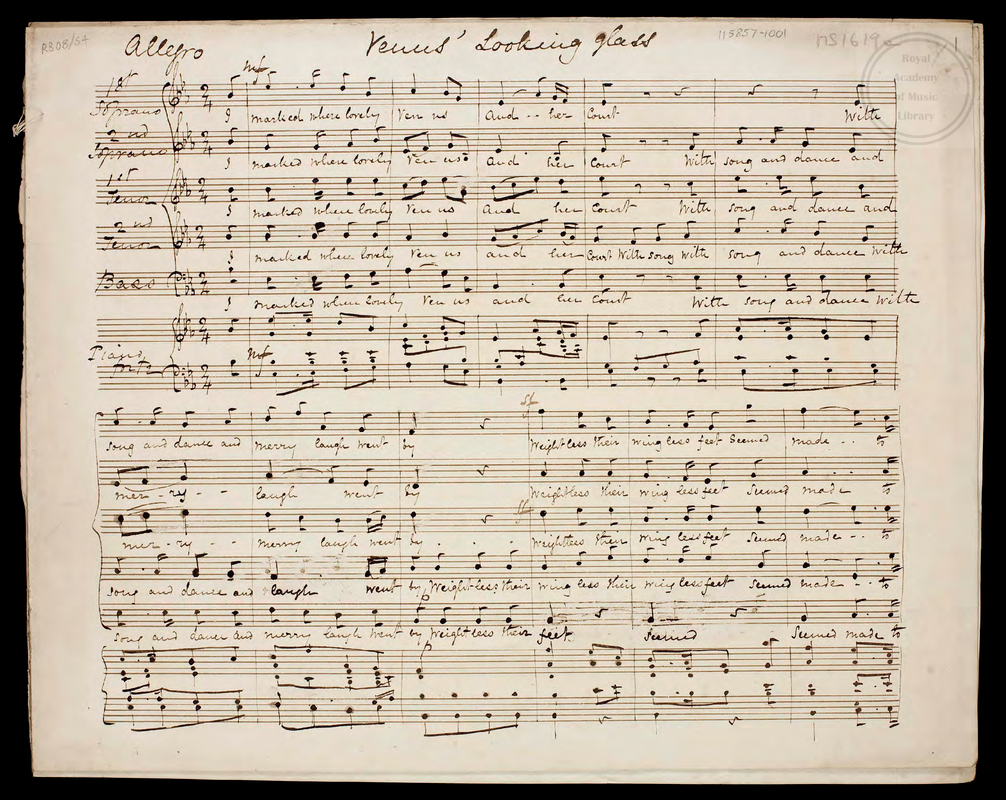 R308/54
Allegro
Venus' Looking glass
115857-1001
MS1619
1
Royal
Academy
of Music
Library
mf
1st
Soprano
2/4
I marked where lovely Ven us And - - her Court With
2nd
Soprano
2/4
I marked where lovely Ven us And her Court With song and dance and
1st
Tenor
2/4
I marked where lovely Ven us And her Court With song and dance and
2nd
Tenor
2/4
I marked where lovely Ven us and her Court With song with song and dance with
Bass
2/4
I marked where lovely Ven us and her Court With song and dance with
Piano
forte
2/4
mf
2/4
sf
song and dance and merry laugh went by Weightless their wing less feet Seemed made . . to
mer - ry - - laugh went by Weightless their wing less feet Seemed made to
sf
mer - ry - - merry laugh went by . . . Weightless their wing less feet Seemed made - . to
song and dance and laugh went by Weightless their wing less their wing less feet seemed made . . to
song and dance and merry laugh went by Weightless their feet Seemed Seemed made to